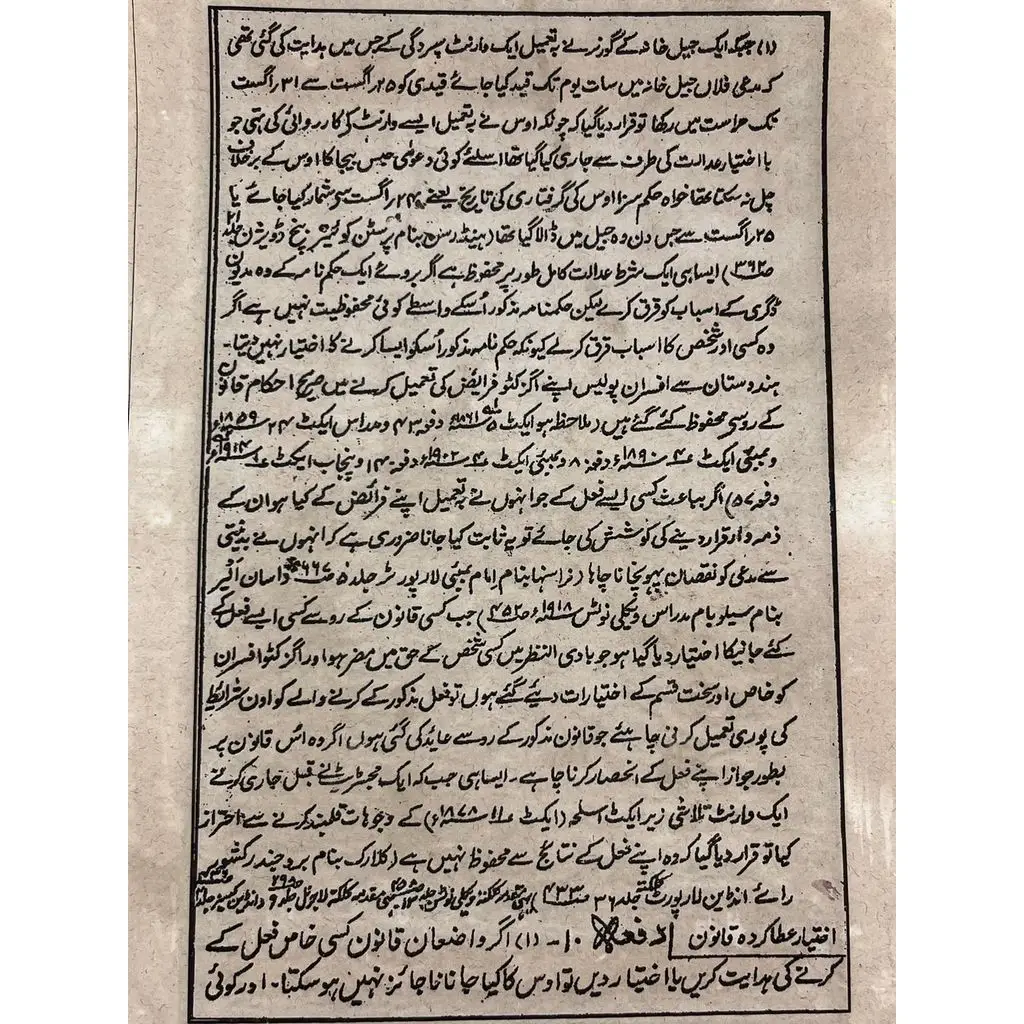 (۱) جبکہ ایک جیل خانہ کے گورنر نے بہ تعمیل ایک وارنٹ سپردگی کے جس میں ہدایت کی گئی تھی
کہ مدعی فلاں جیل خانہ میں سات یوم تک قید کیا جائے قیدی کو ۲۵؍اگست سے ۳۱؍اگست
تک حراست میں رکھا تو قرار دیا گیا کہ چونکہ اوس نے بہ تعمیل ایسے وارنٹ کے کارروائی کی تھی جو
با اختیار عدالت کی طرف سے جاری کیا گیا تھا اسلئے کوئی دعویٰ حبس بیجا کا اوس کے برخلاف
چل نہ سکتا تھا خواہ حکم سزا اوس کی گرفتاری کی تاریخ یعنے ۲۴؍اگست سے شمار کیا جائے یا
۲۵؍اگست سے جس دن وہ جیل میں ڈالا گیا تھا (ہینڈرسن بنام پرسٹن کوئینز بنچ ڈویژن جلد ۲۱
صـ۳۶۲) ایسا ہی ایک شرط عدالت کامل طور پر محفوظ ہے اگر بروئے ایک حکم نامہ کے وہ مدیون
ڈگری کے اسباب کو قرق کرے لیکن حکمنامہ مذکور اُسکے واسطے کوئی محفوظیت نہیں ہے اگر
وہ کسی اور شخص کا اسباب قرق کرے کیونکہ حکم نامہ مذکور اُسکو ایسا کرنے کا اختیار نہیں دیتا۔
ہندوستان سے افسران پولیس اپنے اگزکٹو فرائض کی تعمیل کرنے میں صریح احکام قانون
کے رو سے محفوظ کئے گئے ہیں (ملاحظہ ہو ایکٹ ۵ ۱۸۶۱ء دفعہ ۴۳ و مدراس ایکٹ ۲۴ ۱۸۵۹ء
و بمبئی ایکٹ ۴ ۱۸۹۰ء دفعہ ۸۰ و بمبئی ایکٹ ۴ ۱۹۰۲ء دفعہ ۱۴۰ و پنجاب ایکٹ
دفعہ ۵۷) اگر بباعث کسی ایسے فعل کے جو انہوں نے بہ تعمیل اپنے فرائض کے کیا ہو ان کے
ذمہ وار قرار دینے کی کوشش کی جائے تو یہ ثابت کیا جانا ضروری ہے کہ انہوں نے بدنیتی
سے مدعی کو نقصان پہونچانا چاہا (نراسنہا بنام امام بمبئی لا رپورٹر جلد ۵ صـ۶۶۷ داسان ائیر
بنام سیلو بام مدراس ویکلی نوٹس ۱۹۱۸ء صـ۴۵۲) جب کسی قانون کے رو سے کسی ایسے فعل کے
کئے جانیکا اختیار دیا گیا ہو جو بادی النظر میں کسی شخص کے حق میں مضر ہو اور اگزکٹو افسران
کو خاص اور سخت قسم کے اختیارات دیئے گئے ہوں تو فعل مذکور کے کرنے والے کو اون شرائط
کی پوری تعمیل کرنی چاہئے جو قانون مذکور کے رو سے عائد کی گئی ہوں اگر وہ اُس قانون پر
بطور جواز اپنے فعل کے انحصار کرنا چاہے۔ ایسا ہی جب کہ ایک مجسٹریٹ نے قبل جاری کرنے
ایک وارنٹ تلاشی زیر ایکٹ اسلحہ (ایکٹ ۱۱ ۱۸۷۸ء) کے وجوہات قلمبند کرنے سے احتراز
کیا تو قرار دیا گیا کہ وہ اپنے فعل کے نتائج سے محفوظ نہیں ہے (کلارک بنام برجندر کشور
رائے انڈین لا رپورٹ کلکتہ جلد ۳۶ صـ۴۳۳
اختیار عطا کردہ قانون دفعہ ۱۰۔ (۱) اگر واضعان قانون کسی خاص فعل کے
کرنے کی ہدایت کریں یا اختیار دیں تو اوس کا کیا جانا ناجائز نہیں ہو سکتا۔ اور کوئی